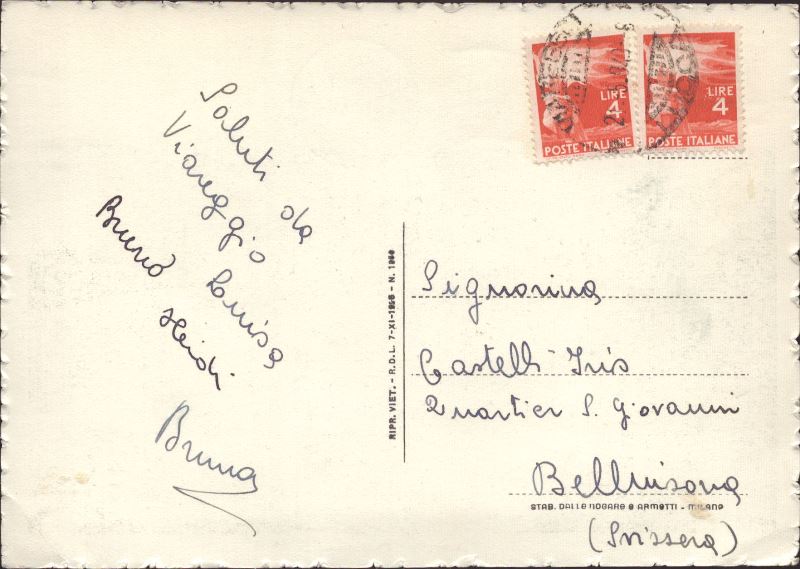 Saluti da
Viareggio
Luisa
Bruno
Heidi
Bruna
LIRE
4
POSTE ITALIANE
LIRE
4
POSTE ITALIANE
RIPR. VIET. - R.D.L. 7-XI-1925 - N.
Signorina
Castelli Iris
Quartier S. Giovanni
Bellinsona
STAB. DALLE NOGARE E ARMETTI - MILANO
(Svissera)